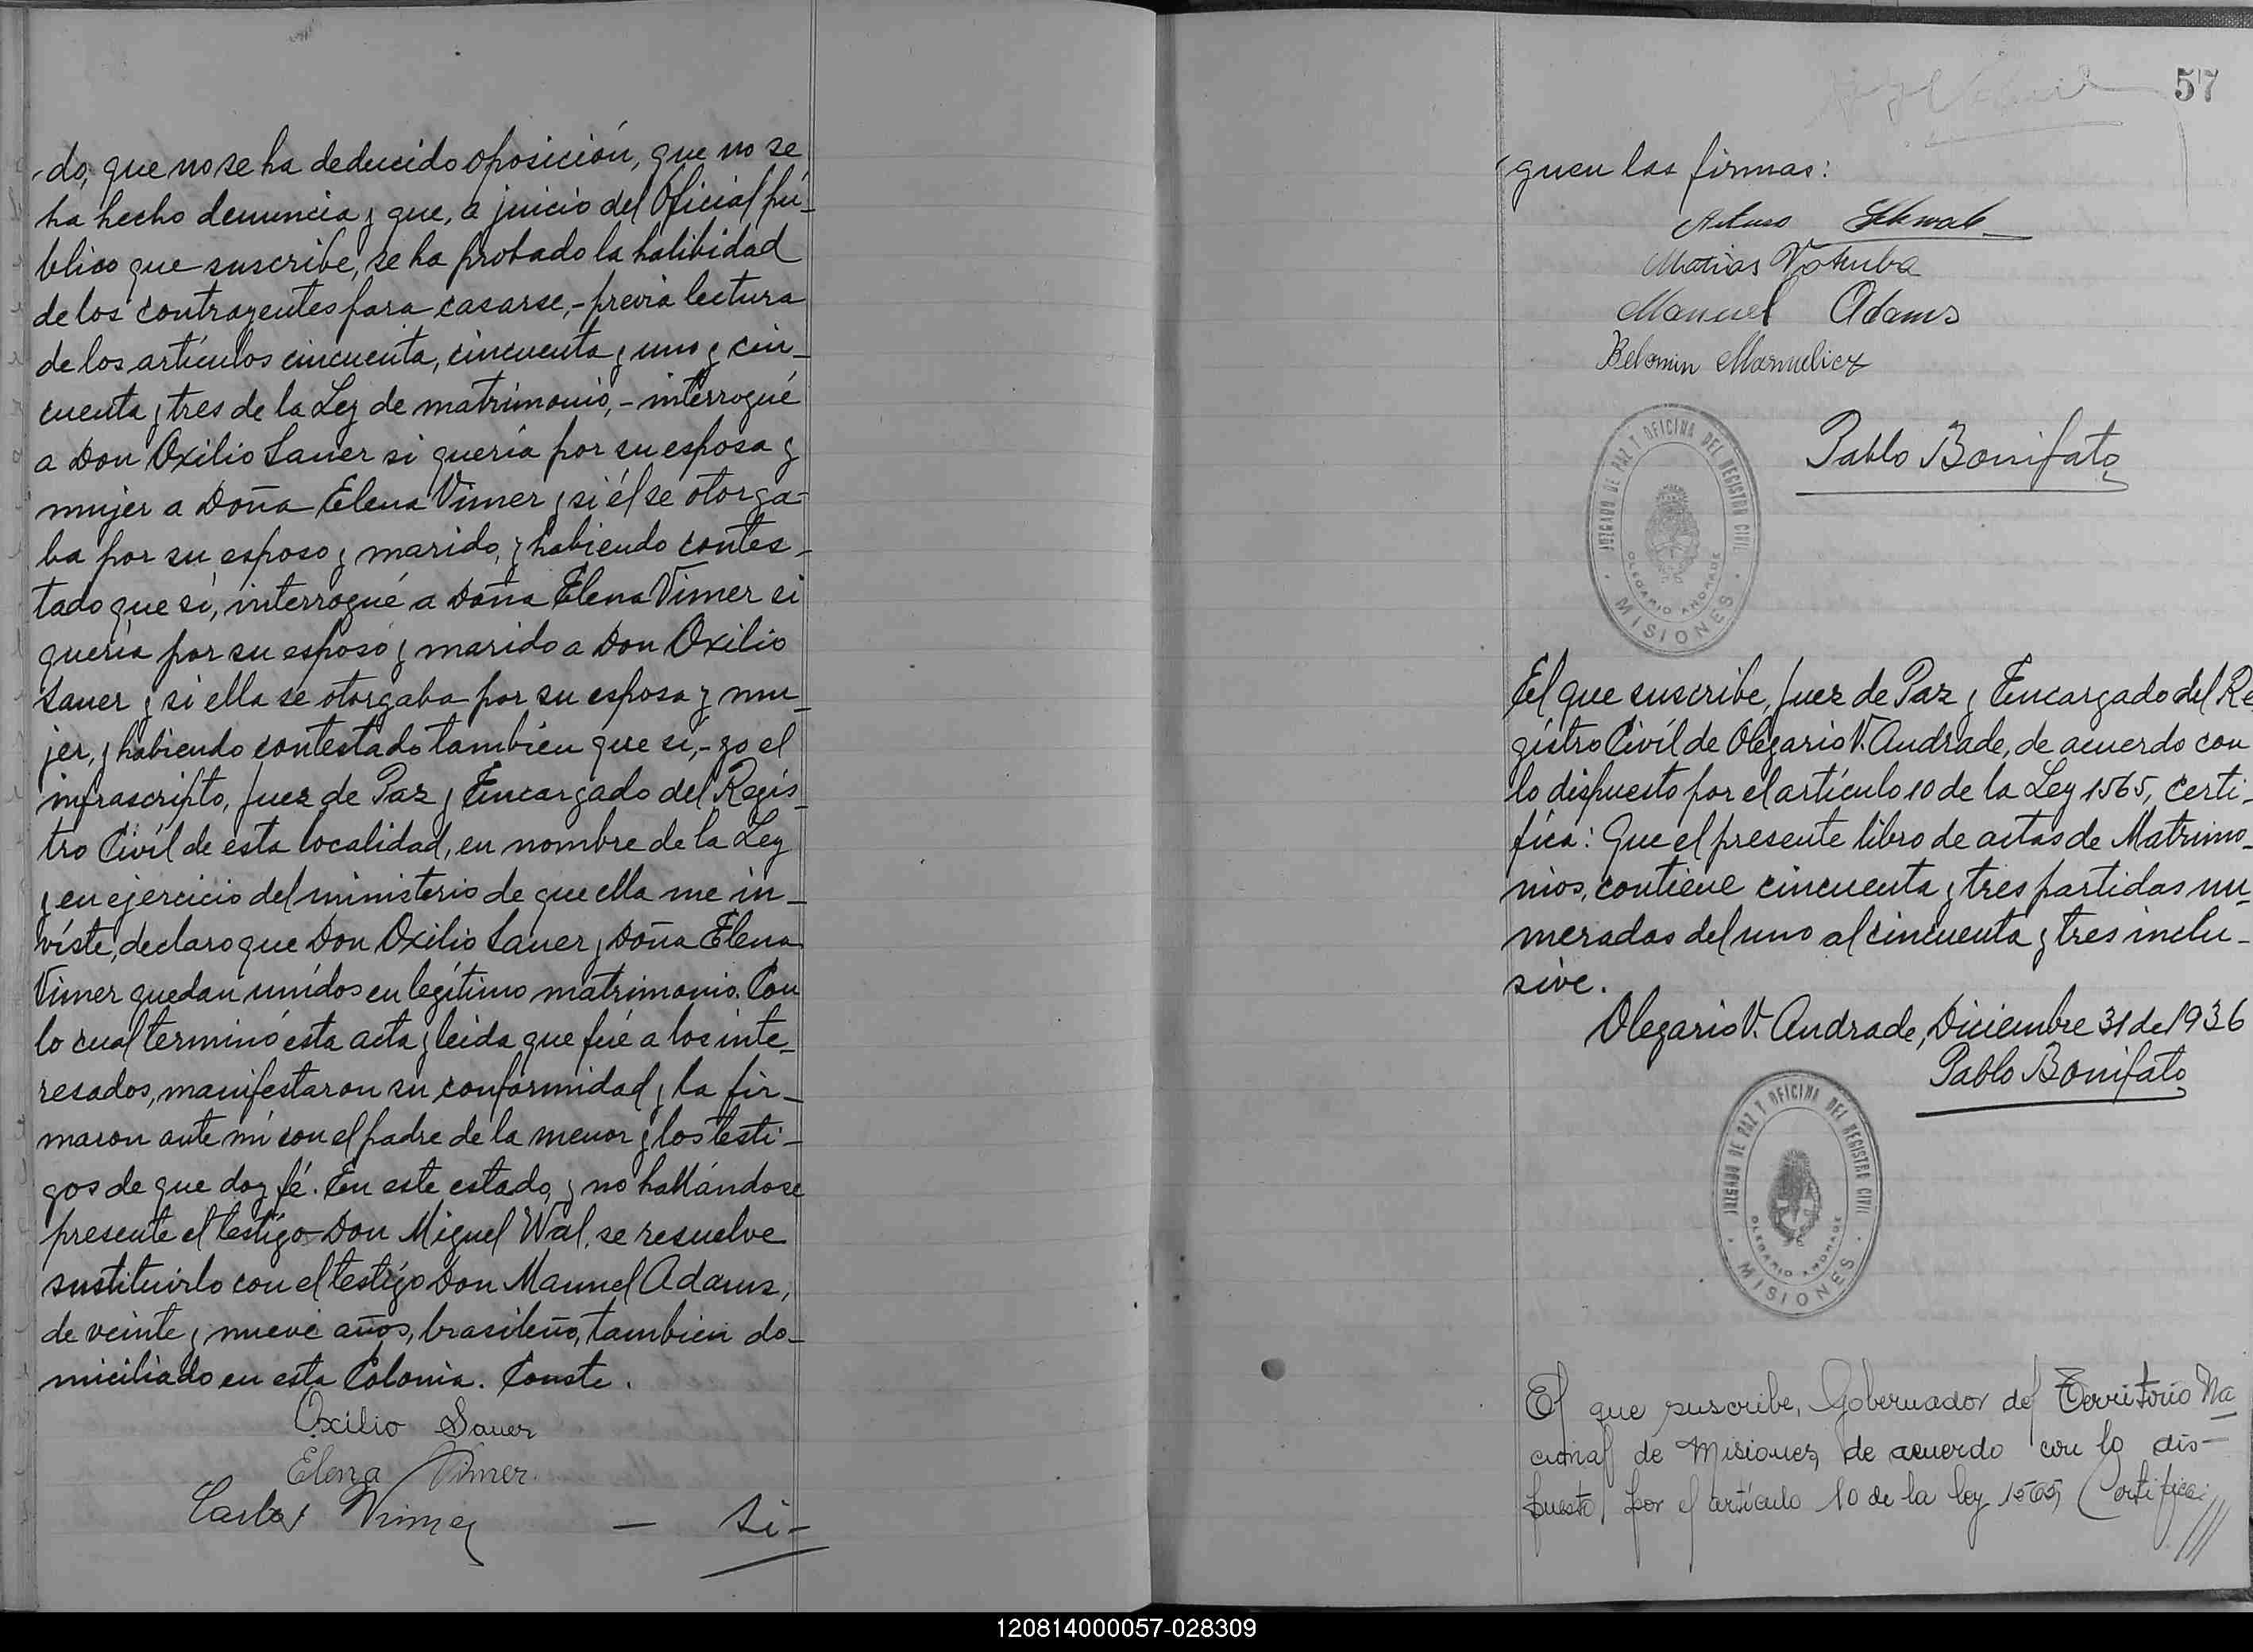 do, que no se ha deducido oposición, que no se
ha hecho denuncia y que, a juicio del Oficial pú-
blico que suscribe, se ha probado la halibidad
de los contrayentes para casarse,- previa lectura
de los artículos cincuenta, cincuenta y uno y cin-
cuenta y tres de la Ley de matrimonio,- interrogué
a Don Oxilio Sauer si quería por su esposa y
mujer a Doña Elena Vimer y si él se otorga-
ba por su esposo y marido, y habiendo contes-
tado que sí, interrogué a Doña Elena Vimer si
quería por su esposo y marido a Don Oxilio
Sauer y si ella se otorgaba por su esposa y mu-
jer, y habiendo contestado también que sí,- yo el
infrascripto, Juez de Paz y Encargado del Regis-
tro Civíl de esta localidad, en nombre de la Ley
y en ejercicio del ministerio de que ella me in-
víste, declaro que Don Oxilio Sauer y Doña Elena
Vimer quedan unídos en legítimo matrimonio. Con
lo cual terminó esta acta y leida que fué a los inte-
resados, manifestaron su conformidad y la fir-
maron ante mí con el padre de la menor y los testi-
gos de que doy fé. En este estado, y no hallándose
presente el testígo Don Miguel Wal, se resuelve
sustituirlo con el testígo Don Manuel Adams,
de veinte y nueve años, brasileño, tambien do-
miciliado en esta Colonia. Conste.
Oxilio Sauer
Elena Vimer.
Carlos Vimer — Si-
57
guen las firmas:
Arturo Schwab
Matias Votruba
Manuel Adams
Pablo Bonifato
JUZGADO DE PAZ Y OFICINA DEL REGISTRO CIVIL
OLEGARIO ANDRADE
MISIONES
El que suscribe, Juez de Paz y Encargado del Re-
gistro Civíl de Olegario V. Andrade, de acuerdo con
lo dispuesto por el artículo 10 de la Ley 1565, certi-
fíca: Que el presente libro de actas de Matrimo-
nios, contiene cincuenta y tres partidas nu-
meradas del uno al cincuenta y tres inclu-
sive.
Olegario V. Andrade, Diciembre 31 de 1936
Pablo Bonifato
JUZGADO DE PAZ Y OFICINA DEL REGISTRO CIVIL
OLEGARIO ANDRADE
MISIONES
El que suscribe, Gobernador del Territorio Na-
cional de Misiones, de acuerdo con lo dis-
puesto por el artículo 10 de la ley 1565, Certifica:///
120814000057-028309